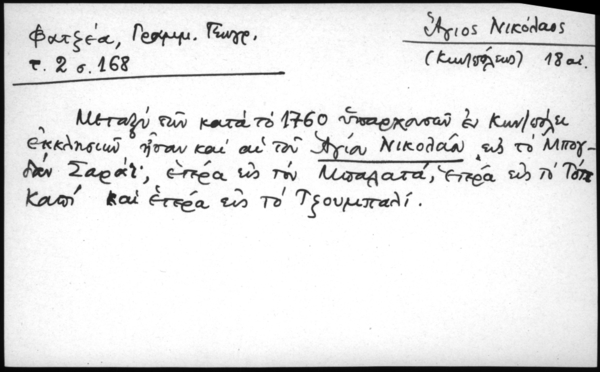 Φατζέα, Γραμμ. Γεωργ.
τ. 2 σ. 168
Ἅγιος Νικόλαος
(Κων/πόλεως) 18 αἰ.
Μεταξύ τῶν κατά τό 1760 ὑπαρχουσῶν ἐν Κων/πόλει
ἐκκλησιῶν ἦσαν καί αἱ τοῦ Ἁγίου Νικολάου εἰς τό Μπογ-
δάν Σαράϊ, ἑτέρα εἰς τόν Μπαλατά, ἑτέρα εἰς τό Τόπ
Καπί καί ἑτέρα εἰς τό Τζουμπαλί.